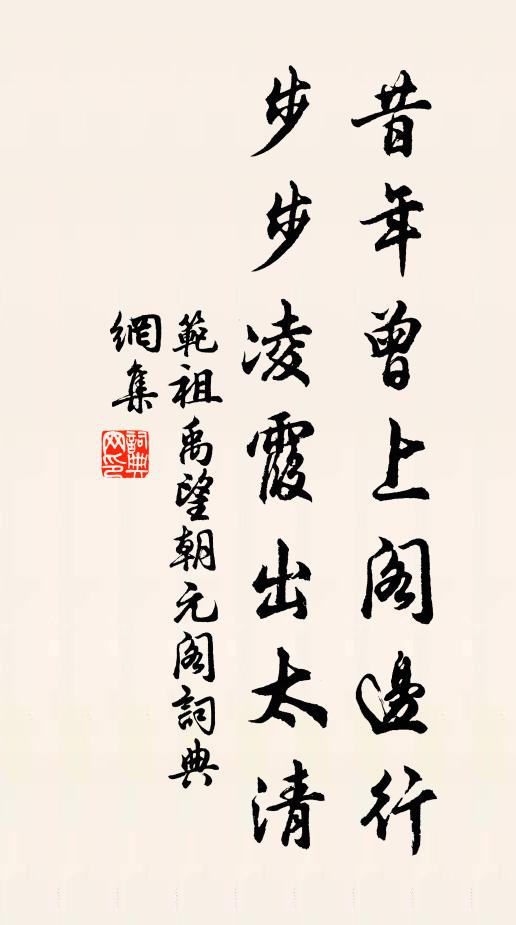 昔年曾上阁邊行
步步凌霞出太清
範祖禹望朝元阁詞典
網集
詞典網印